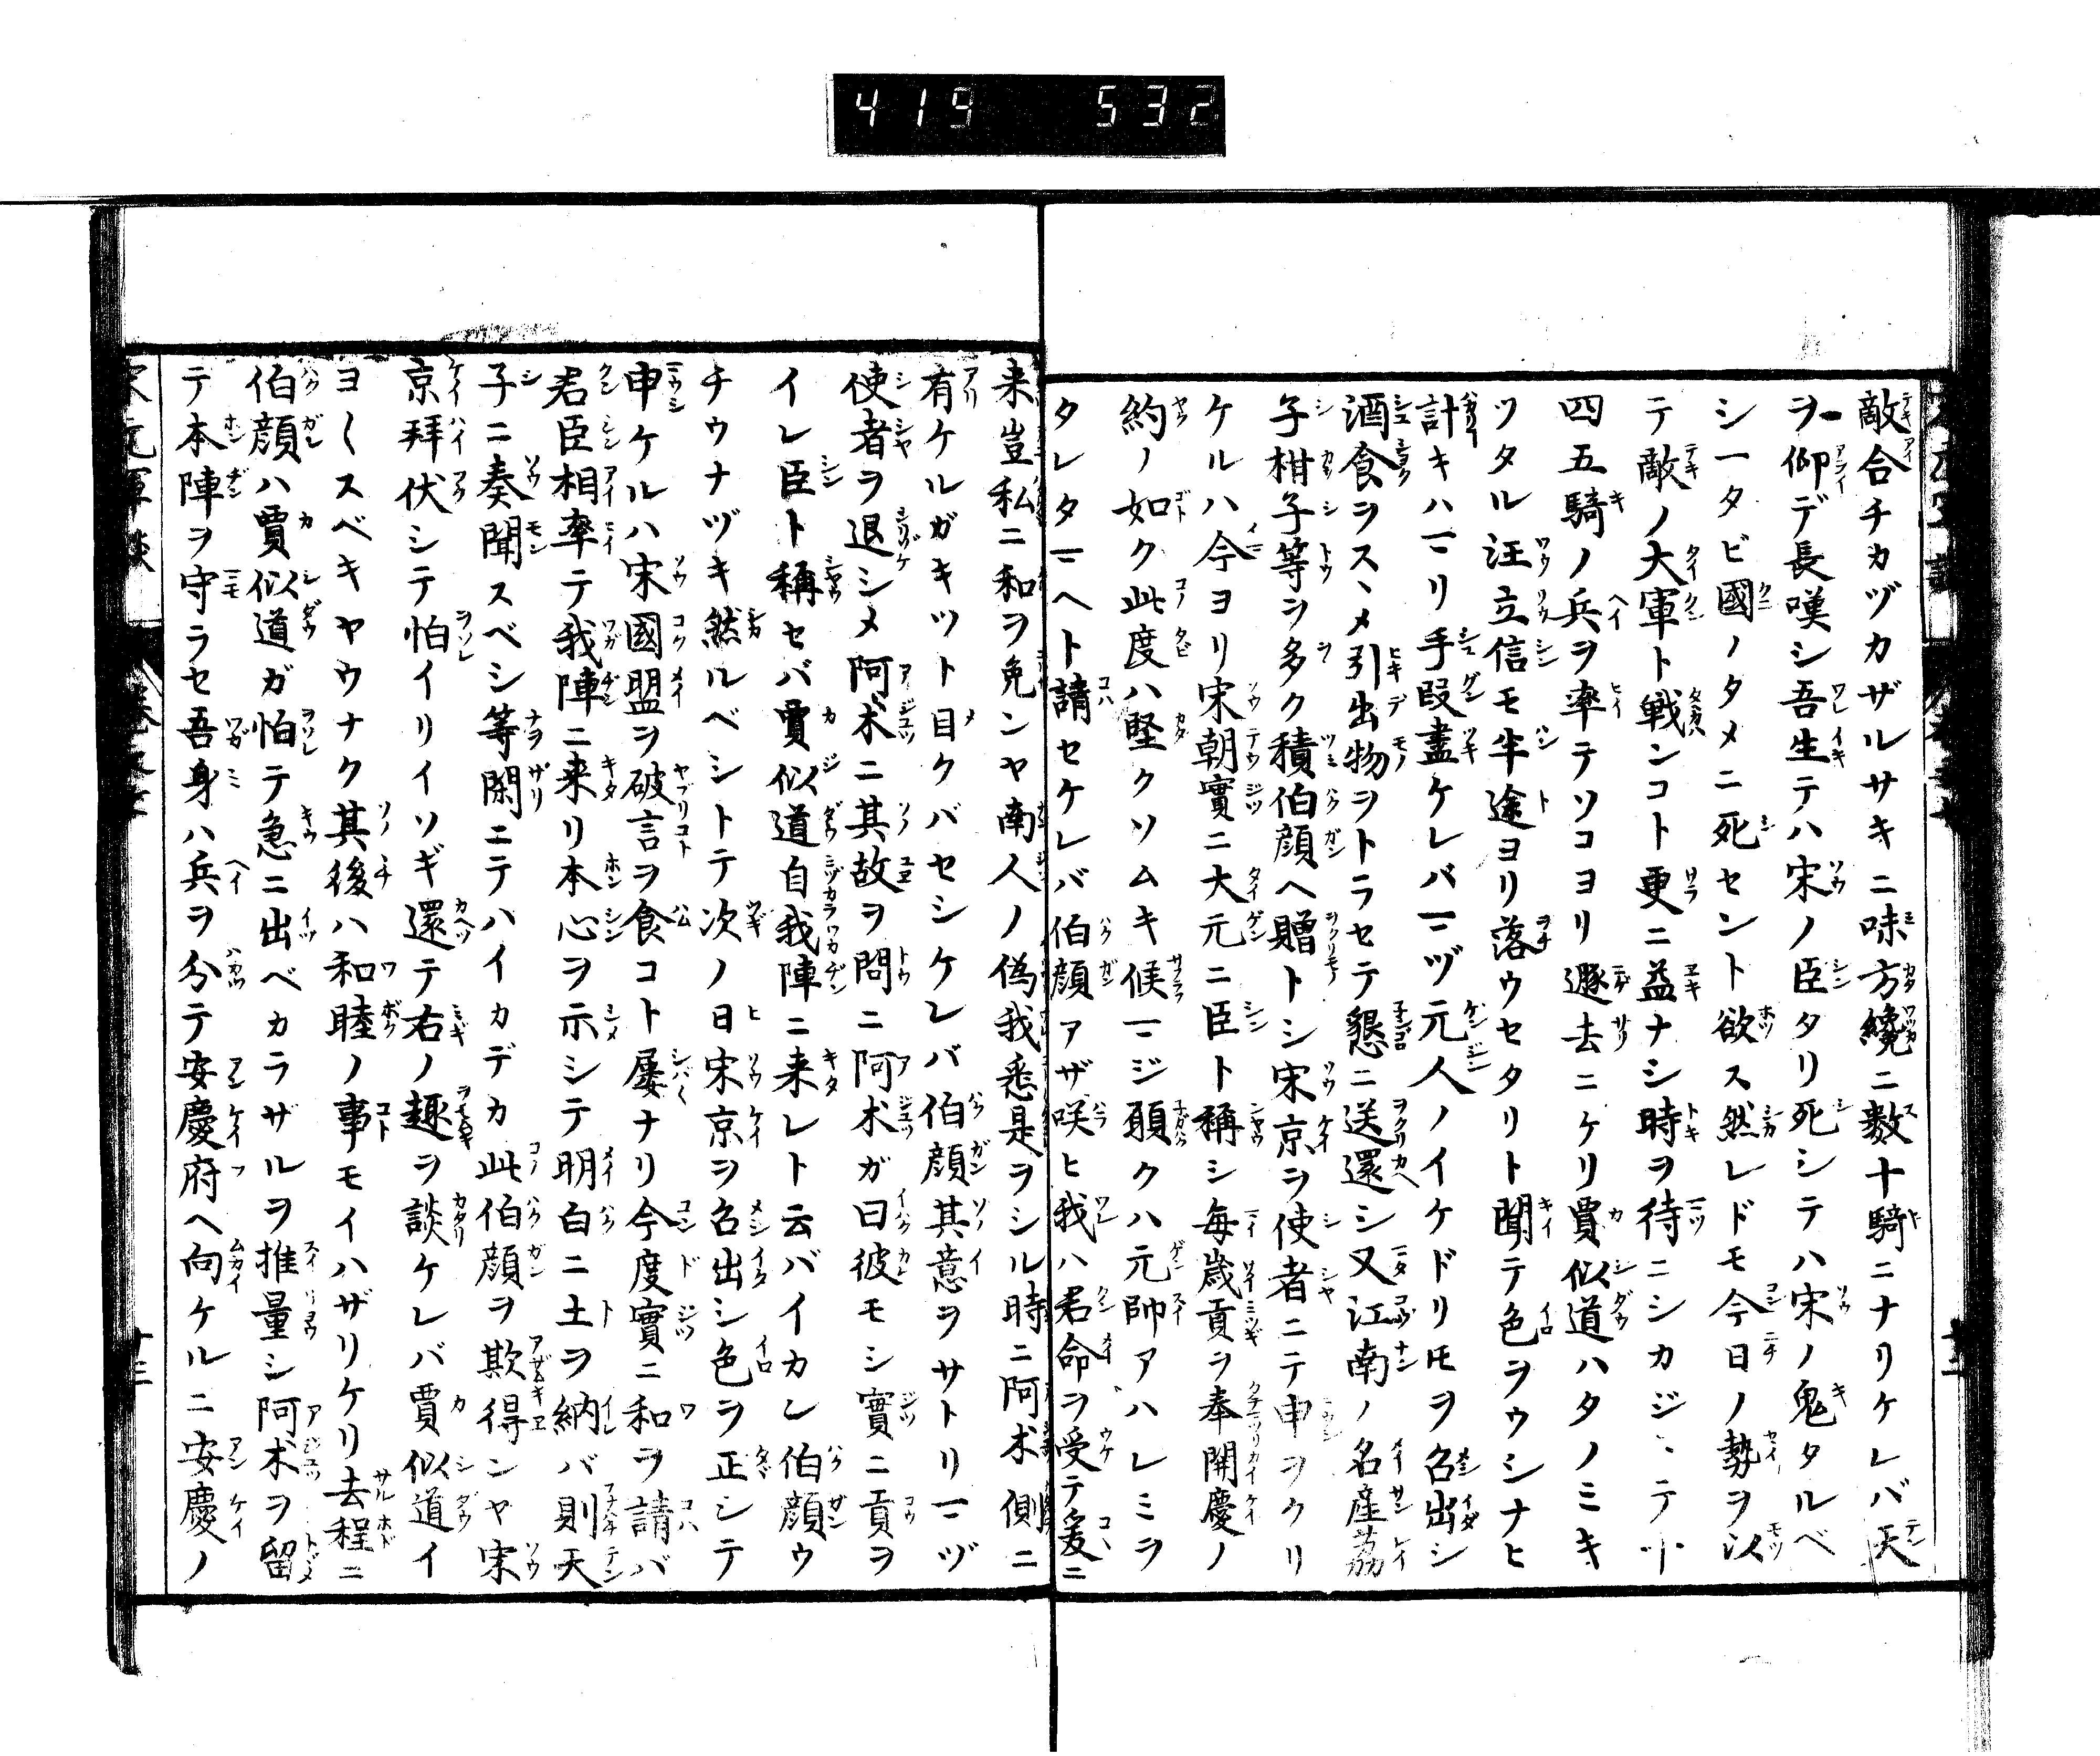 419 532
敵合チカヅカザルサキニ味方纔ニ数十騎ニナリケレバ天
ヲ仰デ長嘆シ吾生テハ宋ノ臣タリ死シテハ宋ノ鬼タルベ
シ一タビ國ノタメニ死セント欲ス然レドモ今日ノ勢ヲ以
テ敵ノ大軍ト戦ンコト更ニ益ナシ時ヲ待ニシカジヽテ
四五騎ノ兵ヲ率テソコヨリ遯去ニケリ賈似道ハタノミキ
ツタル汪立信モ半途ヨリ落ウセタリト聞テ色ヲウシナヒ
計キハマリ手段盡ケレバマヅ元人ノイケドリ𪜈ヲ召出シ
酒食ヲスヽメ引出物ヲトラセテ懇ニ送還シ又江南ノ名産茘
子柑子等ヲ多ク積伯顔ヘ贈トシ宋京ヲ使者ニテ申ヲクリ
ケルハ今ヨリ宋朝實ニ大元ニ臣ト稱シ毎歳貢ヲ奉開慶ノ
約ノ如ク此度ハ堅クソムキ候マジ願クハ元帥アハレミヲ
タレタマヘト請セケレバ伯顔アザ咲ヒ我ハ君命ヲ受テ爰ニ
来豈私ニ和ヲ免ンヤ南人ノ偽我悉是ヲシル時ニ阿朮側ニ
有ケルガキツト目クバセシケレバ伯顔其意ヲサトリマヅ
使者ヲ退シメ阿朮ニ其故ヲ問ニ阿朮ガ曰彼モシ實ニ貢ヲ
イレ臣ト稱セバ賈似道自我陣ニ来レト云バイカン伯顔ウ
チウナヅキ然ルベシトテ次ノ日宋京ヲ召出シ色ヲ正シテ
申ケルハ宋國盟ヲ破言ヲ食コト屡ナリ今度實ニ和ヲ請バ
君臣相率テ我陣ニ来リ本心ヲ示シテ明白ニ土ヲ納バ則天
子ニ奏聞スベシ等閑ニテハイカデカ此伯顔ヲ欺得ンヤ宋
京拜伏シテ怕イリイソギ還テ右ノ趣ヲ談ケレバ賈似道イ
ヨ〱スベキヤウナク其後ハ和睦ノ事モイハザリケリ去程ニ
伯顔ハ賈似道ガ怕テ急ニ出ベカラザルヲ推量シ阿朮ヲ留
テ本陣ヲ守ラセ吾身ハ兵ヲ分テ安慶府ヘ向ケルニ安慶ノ
宋元軍談
十三